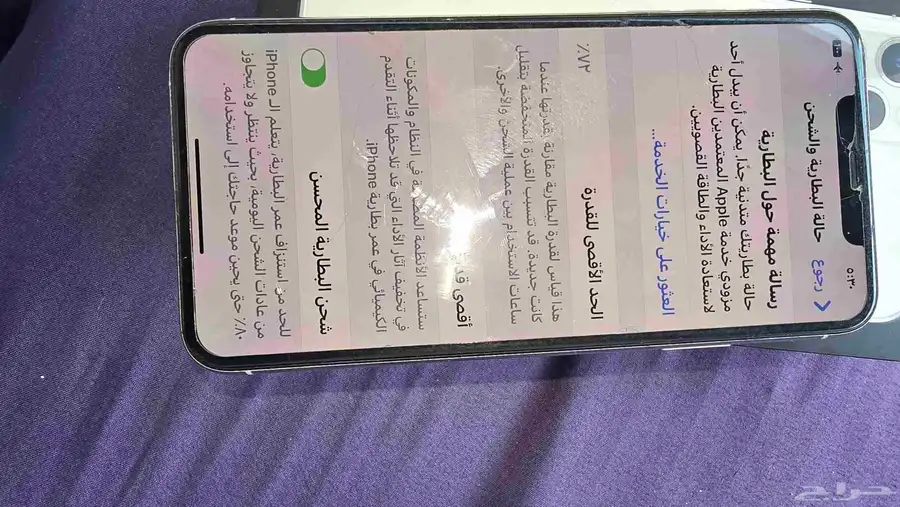 ٥:٣٠
رجوع
حالة البطارية والشحن
رسالة مهمة حول البطارية
حالة بطاريتك متدنية جدًا. يمكن أن يبدل أحد
مزودي خدمة Apple المعتمدين البطارية
لاستعادة الأداء والطاقة القصويين.
العثور على خيارات الخدمة...
الحد الأقصى للقدرة
٪٧٢
هذا قياس لقدرة البطارية مقارنة بقدرتها عندما
كانت جديدة. قد تتسبب القدرة المنخفضة بتقليل
ساعات الاستخدام بين عملية الشحن والأخرى.
أقصى
ستساعد الأنظمة في النظام والمكونات
في تخفيف آثار الأداء التي قد تلاحظها أثناء التقدم
الكيميائي في عمر بطارية iPhone.
شحن البطارية المحسن
للحد من استنزاف عمر البطارية، يتعلم الـ iPhone
من عادات الشحن اليومية، بحيث ينتظر ولا يتجاوز
٨٠٪ حتى يحين موعد حاجتك إلى استخدامه.
حراج